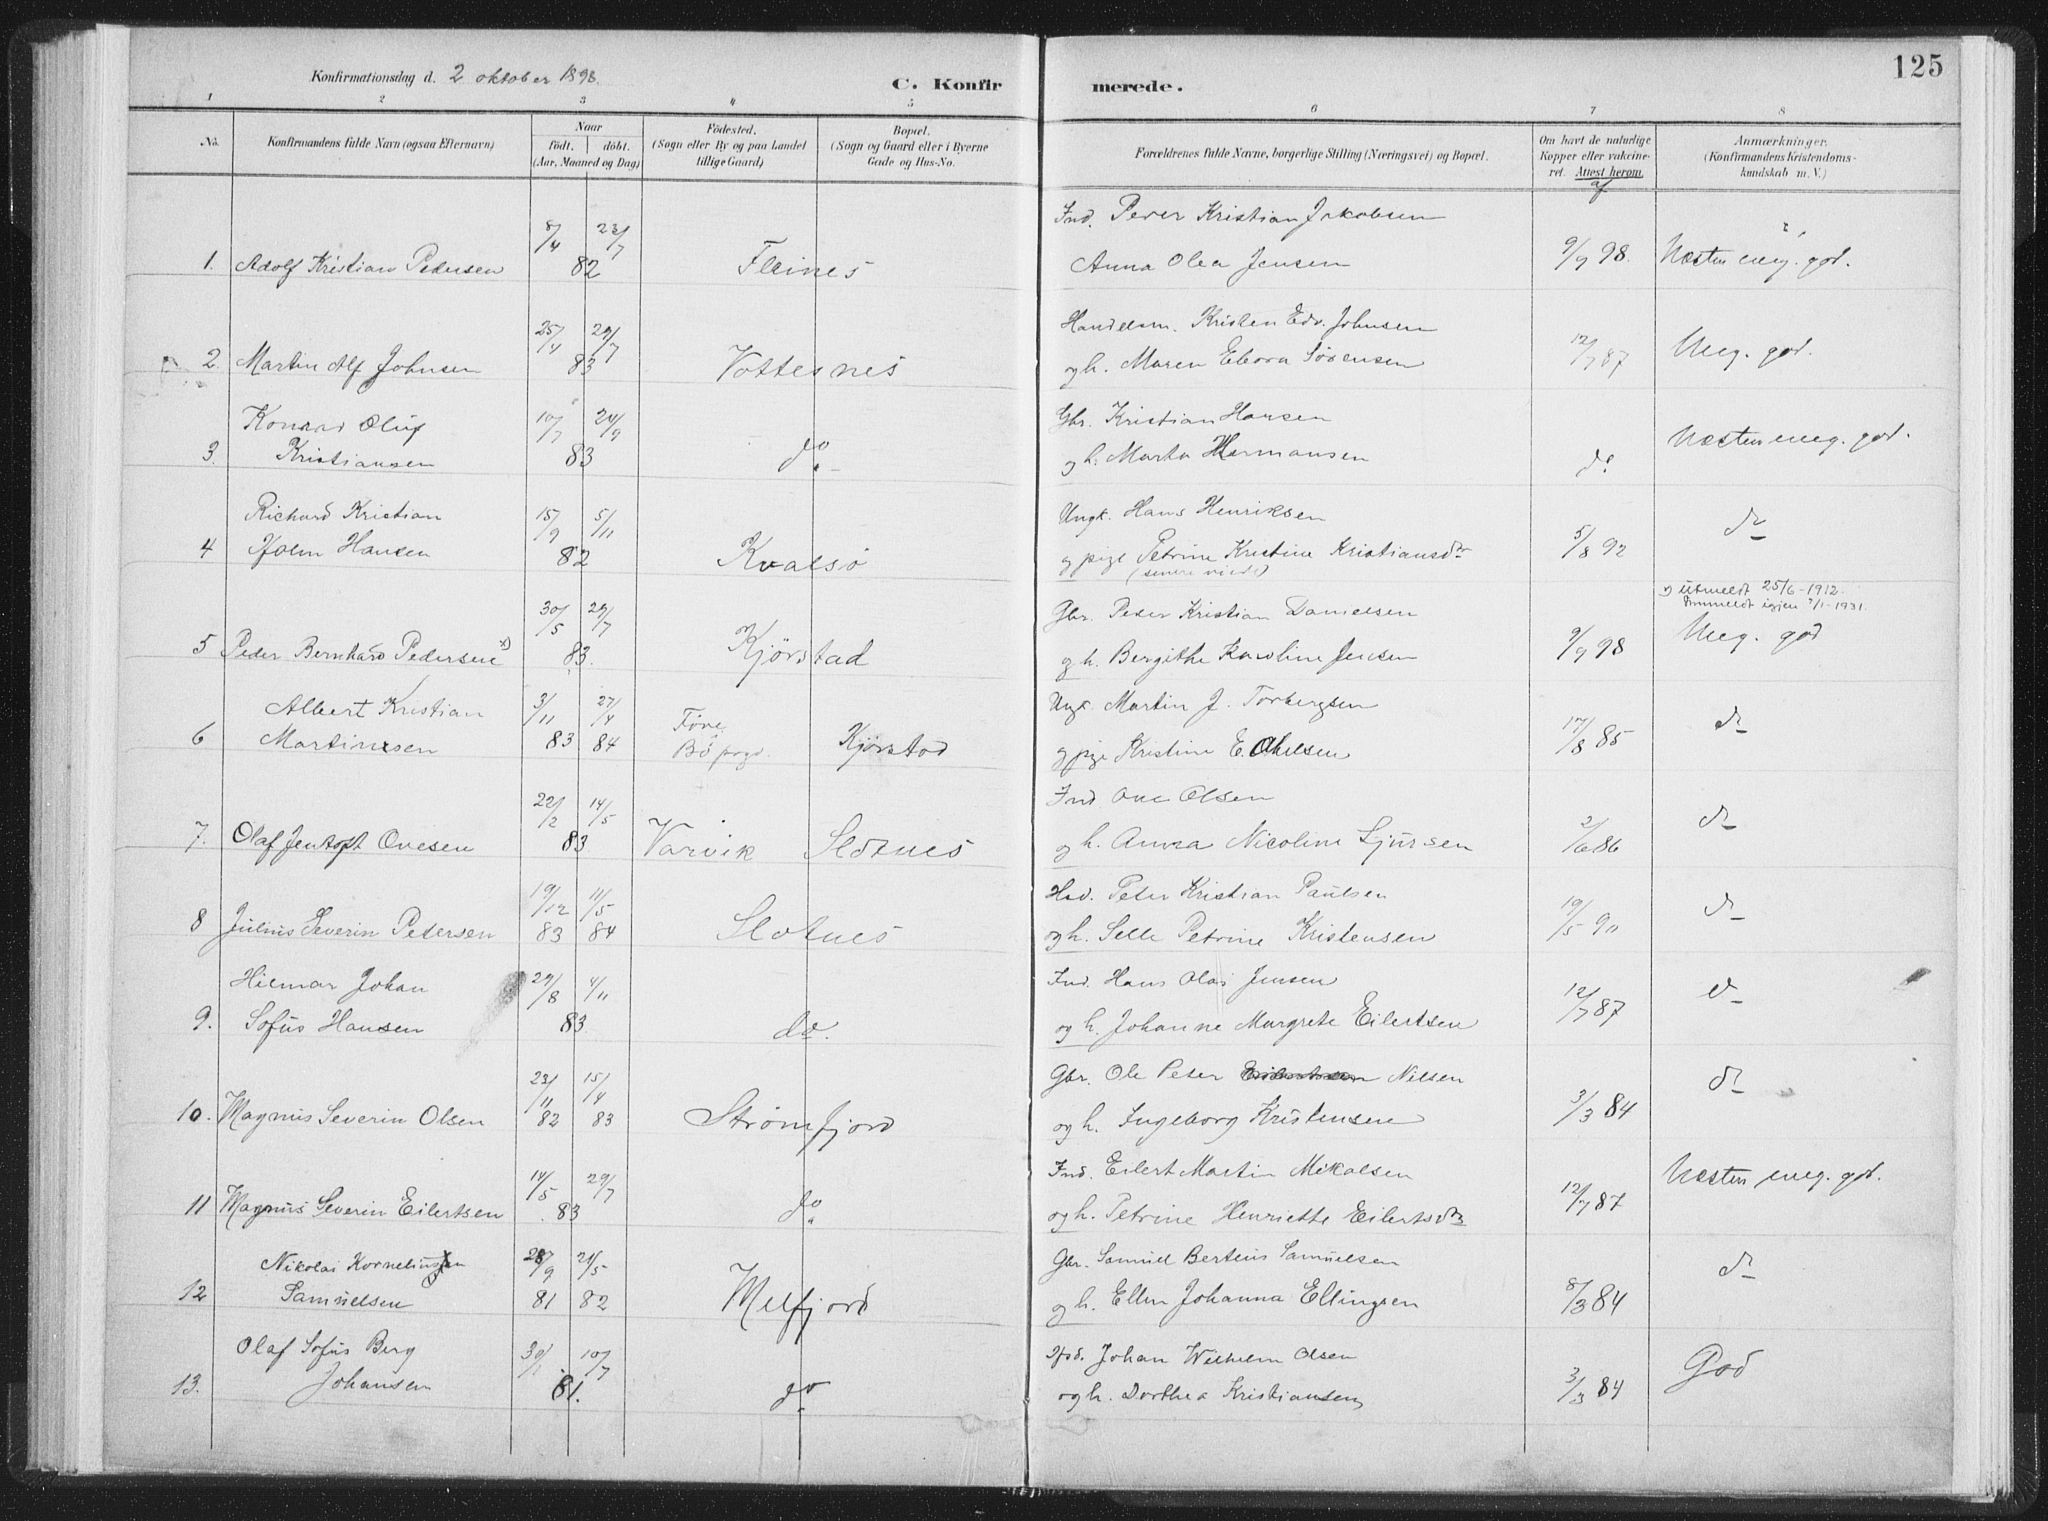 125
Konfirmationsdag d. 2 oktober 1898.
C. Konfirmerede.
1 2 3 4 5 6 7 8
No.
Konfirmandens fulde Navn (ogsaa Efternavn)
Naar
födt. döbt.
(Aar, Maaned og Dag)
Födested.
(Sogn eller By og paa Landet
tillige Gaard)
Bopæl.
(Sogn og Gaard eller i Byerne
Gade og Hus-No.
Forældrenes fulde Navne, borgerlige Stilling (Næringsvei) og Bopæl.
Om havt de naturlige
Kopper eller vakcine-
ret. Attest herom
af
Anmærkninger.
(Konfirmandens Kristendoms-
kundskab m. V.)
Ind. Peder Kristian Jakobsen
8/4 23/7
1. Adolf Kristian Pedersen 82 Fleines Anna Olea Jensen 9/9 98. Næsten meg. god.
25/4 29/7 Handelsm. Kristen Edv. Johnsen
2. Martin Alf Johnsen 83 Vottesnes og h. Maren Ebora Sørensen 12/7 87 Meg. god.
Konrad Oluf 10/7 24/9 Gbr. Kristian Hansen
3. Kristiansen 83 do og h. Marta Hermansen do Næsten meg. god.
Richard Kristian 15/9 5/11 Ungk. Hans Henriksen
4 Holm Hansen 82 Kvalsö og pige Petrine Kristine Kristiansdtr 5/8 92 do
(senere viede)
x) utmeldt 25/6-1912.
Innmeldt igjen 7/1-1931.
30/5 29/7 Gbr. Peder Kristian Danielsen
5 Peder Bernhard Pedersen x) 83. Kjörstad og h. Bergithe Karoline Jensen 9/9 98 Meg. god
Albert Kristian 3/11 27/4 Ungk. Martin J. Torbergsen
6 Martinsen 83 84 Före Bö prgd. Kjörstad og pige Kristine E. Olsen 17/8 85 do
22/2 14/5 Ind Ove Olsen
7. Olaf Jentoft Ovesen 83 Varvik Slotnes og h. Anna Nicoline Sjursen 2/6 86 do
19/12 11/5 Hsd. Peter Kristian Paulsen
8 Julius Severin Petersen 83 84 Slotnes og h. Selle Petrine Kristensen 19/5 90 do
Hilmar Johan 29/8 4/11 Ind. Hans Olai Jensen
9. Sofus Hansen 83 do. og h. Johanne Margrete Eilertsen 12/7 87 do
23/11 15/4 Gbr. Ole Peter Nilsen
10. Magnus Severin Olsen 82 83 Strömfjord og h. Ingeborg Kristensen 3/3 84 do
14/5 29/7 Ind. Eilert Martin Mikalsen
11 Magnus Severin Eilertsen 83 do og h. Petrine Henriette Eilertsdtr 12/7 87 Næsten meg. god.
Nikolai Kornelius 28/9 21/5 Gbr. Samuel Berteus Samuelsen
12 Samuelsen 81 82 Melfjord og h. Ellen Johanna Ellingsen 8/3 84 do
Olaf Sofus Berg 30/1 10/7 Johan Wilhelm Olsen
13. Johansen 81. do og h. Dorthea Kristiansen 3/3 84 God